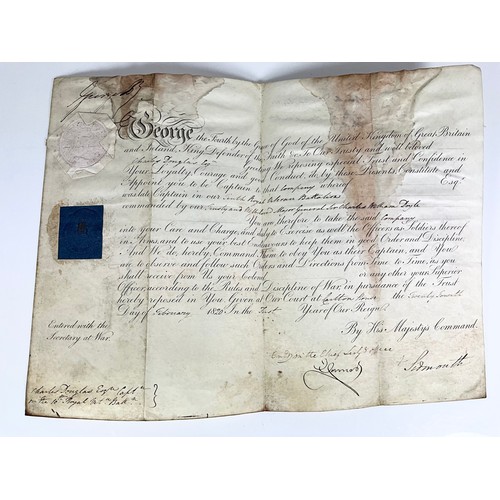 George the Fourth by the Grace of God of the United Kingdom of Great Britain
and Ireland, King, Defender of the Faith &c To Our Trusty and well beloved
Charles Douglas Esq. We reposing especial Trust and Confidence in
Your Loyalty, Courage and good Conduct, do, by these Presents, Constitute and
Appoint you to be Captain to that Company whereof Esq.
was late Captain in Our Royal Veteran Battalion
commanded by our Trusty and Major General Sir Charles William Doyle
You are therefore to take the said Company
into your Care and Charge, and duly to Exercise as well the Officers as Soldiers thereof
in Arms, and to use your best Endeavours to keep them in good Order and Discipline,
And We do, hereby Command Them to Obey You as their Captain, and You
are to observe and follow such Orders and Directions from Time to Time, as you
shall receive from Us your Colonel or any other your Superior
Officer, according to the Rules and Discipline of War, in pursuance of the Trust
hereby reposed in You Given at Our Court at Carlton House the Twenty Seventh
Day of February 1820 In the First Year of Our Reign
By His Majestys Command.
Entered with the
Secretary at War.
Sidmouth
Charles Douglas Esqr. Captn.
in the Royal Vetn. Battn.